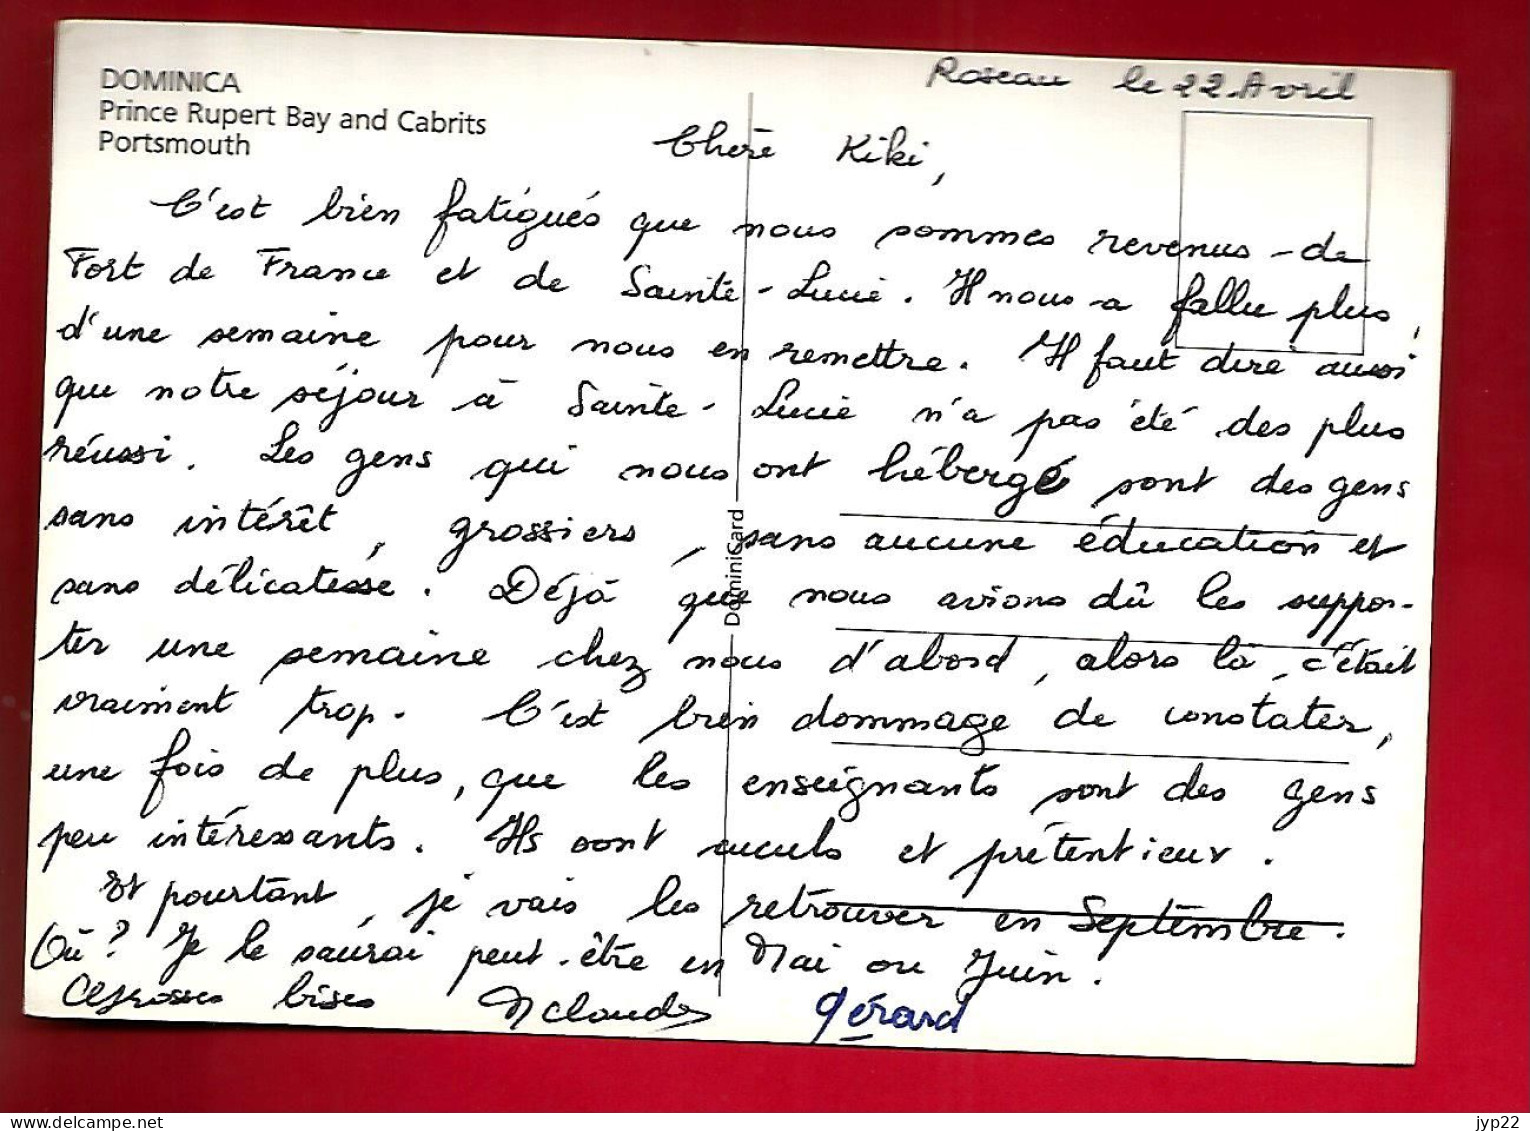 DOMINICA
Prince Rupert Bay and Cabrits
Portsmouth
Roseau le 22 Avril
Chère Kiki,
C'est bien fatigués que nous sommes revenus de
Fort de France et de Sainte-Lucie. Il nous a fallu plus
d'une semaine pour nous en remettre. Il faut dire aussi
que notre séjour à Sainte-Lucie n'a pas été des plus
réussi. Les gens qui nous ont hébergé sont des gens
sans intérêt, grossiers, sans aucune éducation et
sans délicatesse. Déjà que nous avions dû les suppor-
ter une semaine chez nous d'abord, alors là, c'était
vraiment trop. C'est bien dommage de constater,
une fois de plus, que les enseignants sont des gens
peu intéressants. Ils sont et prétentieux.
Et pourtant, je vais les retrouver en Septembre.
Où? Je le saurai peut-être en Mai ou Juin.
Grosses bises Mclaude Gérard
DominiCard
www.delcampe.net
jyp22